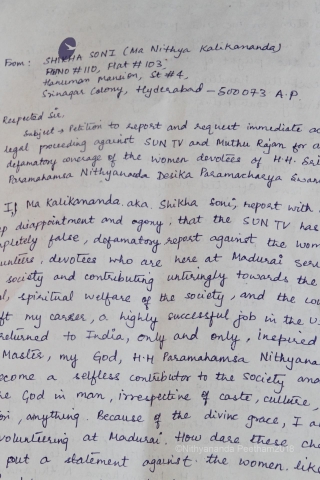 From: SHIKHA SONI (Ma Nithya Kalikananda)
PLNO #110, Flat #103,
Hanuman Mansion, St #4,
Srinagar Colony, Hyderabad - 500073 A.P
Respected Sir,
Subject → Petition to report and request immediate ac
legal proceeding against SUN TV and Muthu Rajan for a
defamatory coverage of the women devotees of H.H. Sri
Paramahamsa Nithyananda Desika Paramacharya Swam
I, Ma Kalikananda aka. Shikha Soni, report with
ep disappointment and agony, that the SUN TV has
pletely false, defamatory report against the wom
unteers, devotees who are here at Madurai serv
society and contributing untiringly towards the
al, spiritual welfare of the society, and the cou
ft my career, a highly successful job in the U.S
returned to India, only and only, inspired
Master, my God, H.H Paramahamsa Nithyanan
ecome a selfless contributor to the society and
he God in man, irrespective of caste, culture,
ion, anything. Because of the divine grace, I a
volunteering at Madurai. How dare these cha
put a statement against the women like
©Nithyananda Peetham2015